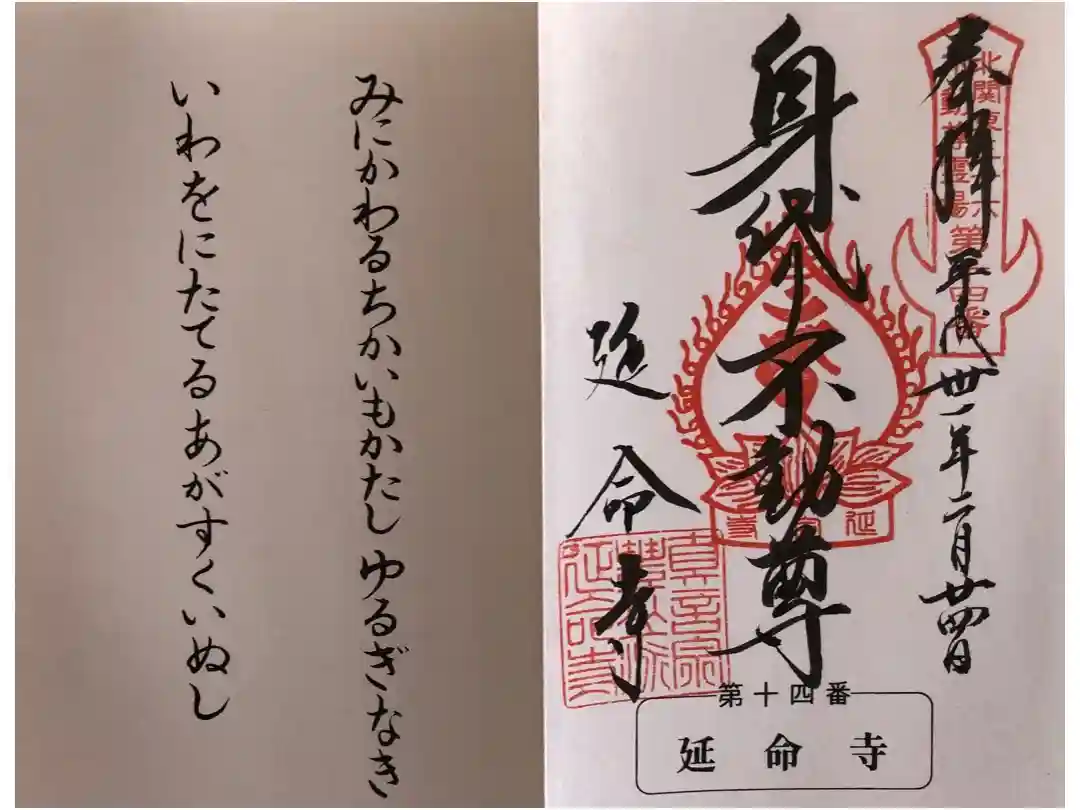 奉拝
平成卅一年二月廿四日
身代不動尊
延命寺
北関東三十六
不動尊霊場
第十四番
延命寺
第十四番
延命寺
みにかわるちかいもかたし ゆるぎなき
いわをにたてるあがすくいぬし